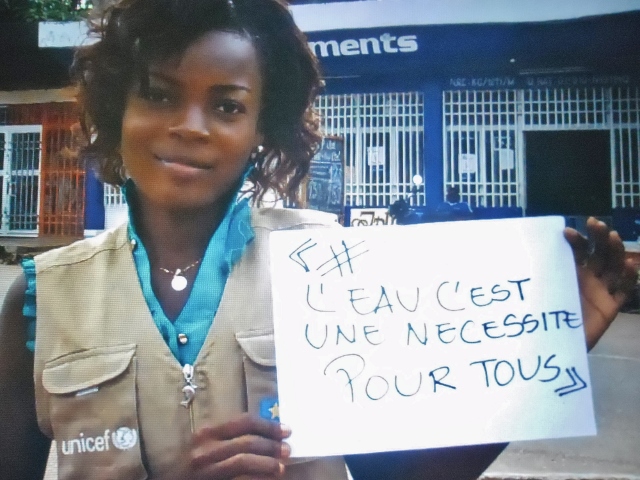 ments
« #
L'EAU C'EST
UNE NECESSITE
POUR TOUS »
unicef